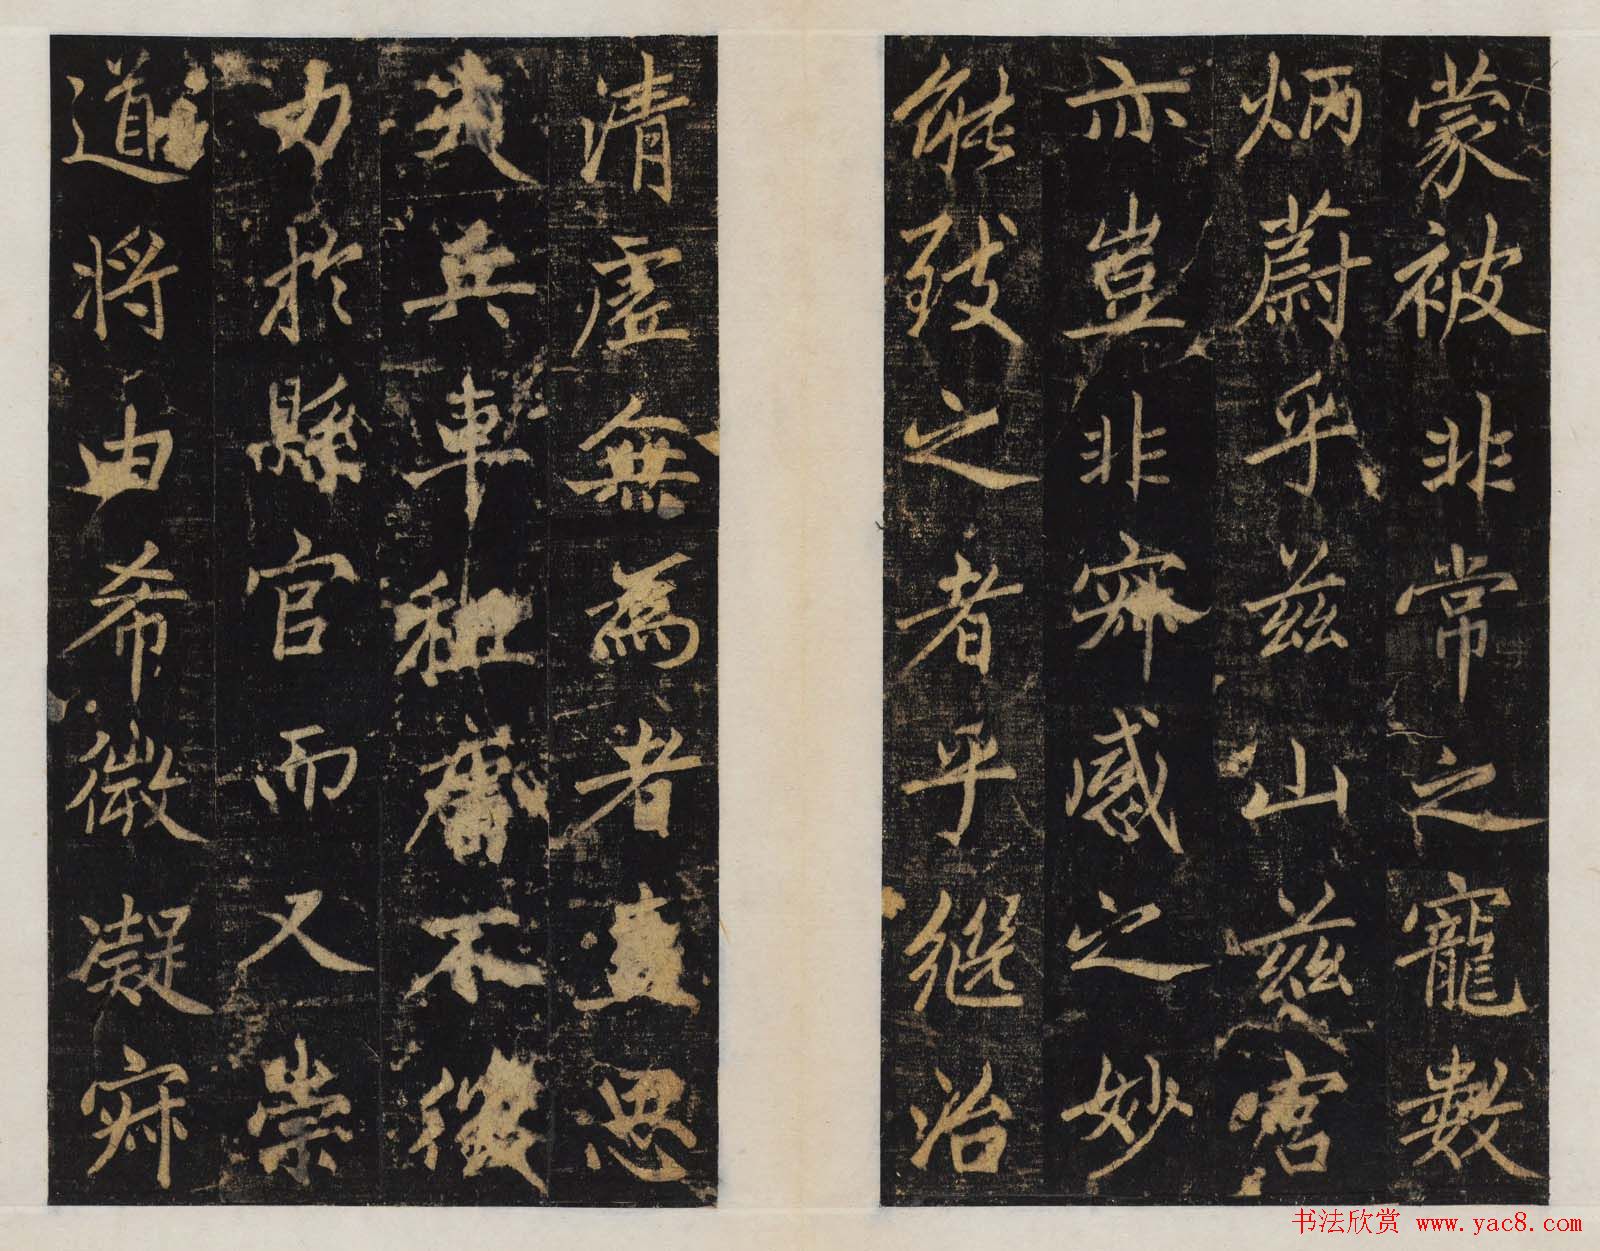 蒙被非常之寵數
炳蔚乎茲山茲宮
亦豈非寂感之妙
能致之者乎繼治
清虛無為者豈思
兵車租不復
力於縣官而又崇
道將由希微凝寂
书法欣赏 www.yac8.com